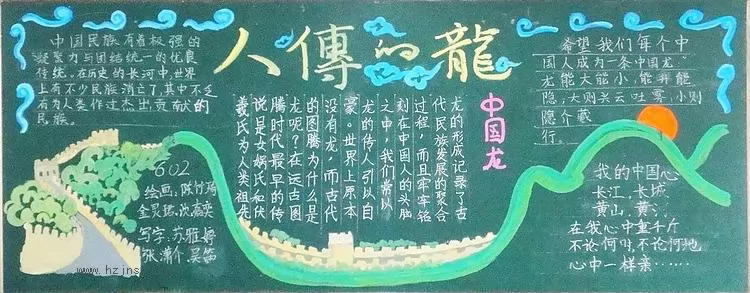 龍的傳人
中国民族有着极强的
凝聚力与团结统一的优良
传统。在历史的长河中,世界
上有不少民族消亡了,其中不乏
有为人类作过杰出贡献的
民族。
中国龙
龙的形成记录了古
代民族发展的聚合
过程,而且牢牢铭
刻在中国人的头脑
之中,我们常以
龙的传人引以自
豪。世界上原本
没有龙,而古代
的图腾为什么是
龙呢?在远古图
腾时代最早的传
说是女娲氏和伏
羲氏为人类祖先
希望我们每个中
国人成为一条中国龙。
龙能大能小,能升能
隐;大则兴云吐雾,小则
隐介藏
行。
602
绘画:陈竹
写字:苏雅婷
张潇介,吴笛
我的中国心
长江,长城,
黄山,黄河
在我心中重千斤
不论何时,不论何地
心中一样亲……
www.hzjns